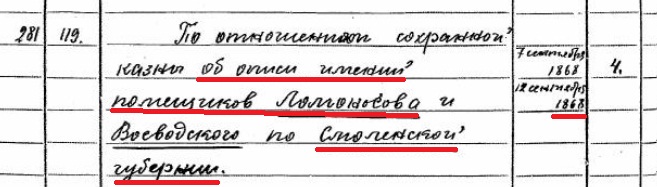 281 119. По отношениям сохранной 7 сентября 4.
казны об описи имений 1868
помещиков Ломоносова и 12 сентября
Воеводского по Смоленской 1868
губернии.